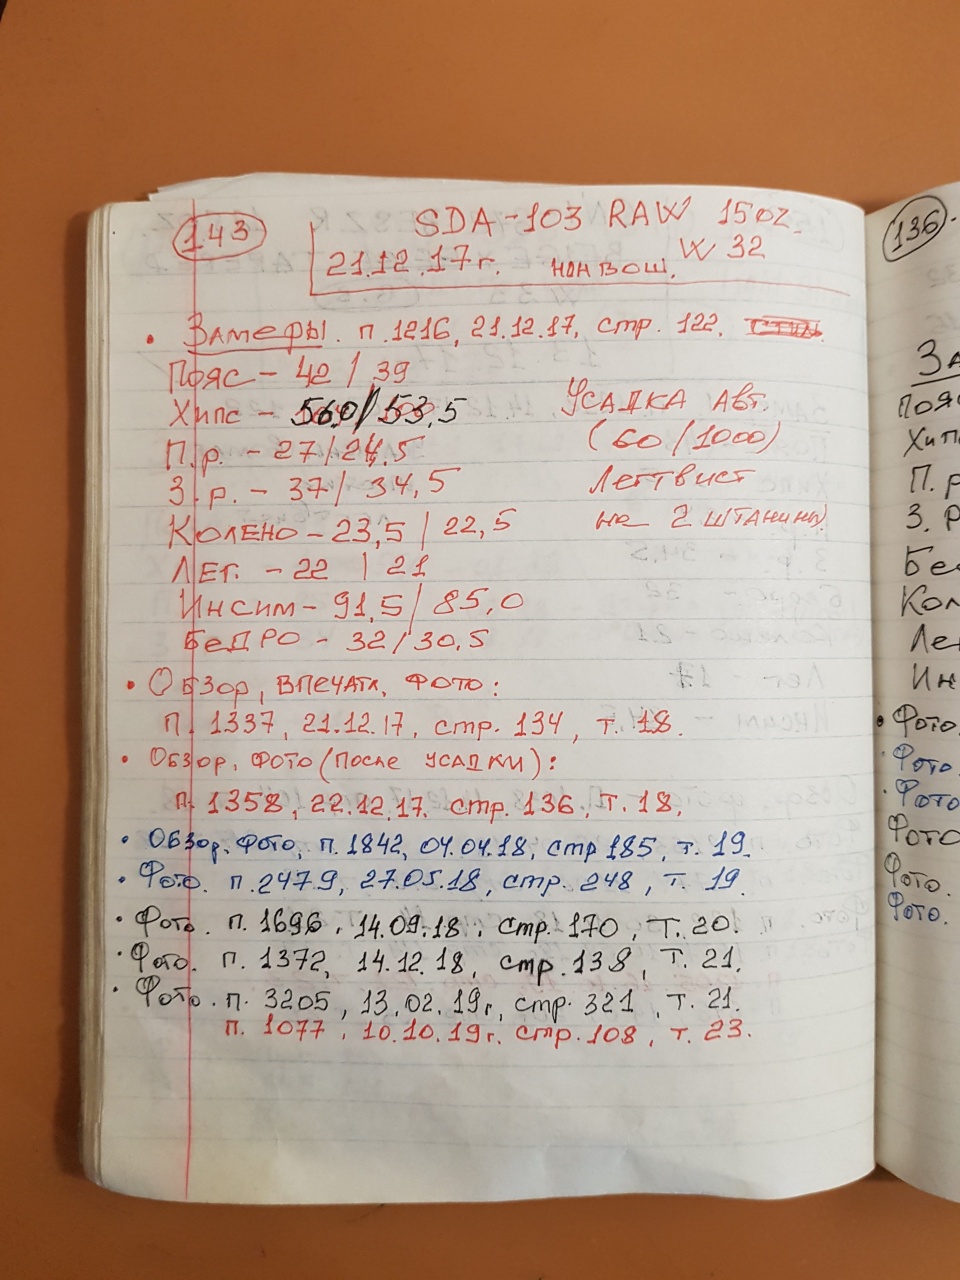 143
SDA-103 RAW 15oz.
21.12.17г. нонвош. W 32
• Замеры. п.1216, 21.12.17, стр. 122.
Пояс - 42 / 39
Хипс - 56.0 / 53,5
Усадка авт.
П.р. - 27 / 24,5
(60/1000)
З.р. - 37 / 34,5
Легтвист
Колено - 23,5 / 22,5
на 2 штанины
Лег. - 22 / 21
Инсим - 91,5 / 85,0
Бедро - 32 / 30.5
• Обзор, впечатл, фото:
п. 1337, 21.12.17, стр. 134, т. 18.
• Обзор, фото (после усадки):
п. 1358, 22.12.17. стр. 136, т. 18.
• Обзор. Фото, п.1842, 04.04.18, стр 185, т. 19.
• Фото. п.2479, 27.05.18, стр. 248, т. 19.
• Фото. п. 1696, 14.09.18, стр. 170, т. 20.
• Фото. п. 1372, 14.12.18, стр. 138, т. 21.
• Фото. п. 3205, 13.02.19г, стр. 321, т. 21.
п. 1077, 10.10.19г. стр. 108, т. 23.
136
За
пояс
Хип
П. р
З. р
Бе
Кол
Ле
Ин
• Фото.
• Фото.
• Фото
Фото
Фото.
Фото.